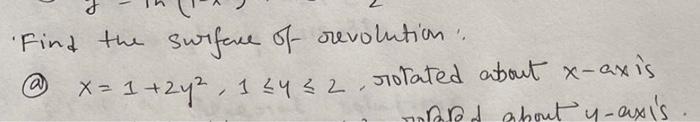 Find the surface of revolution :
(a) x = 1 + 2y², 1 ≤ y ≤ 2, rotated about x-axis
about y-axis.